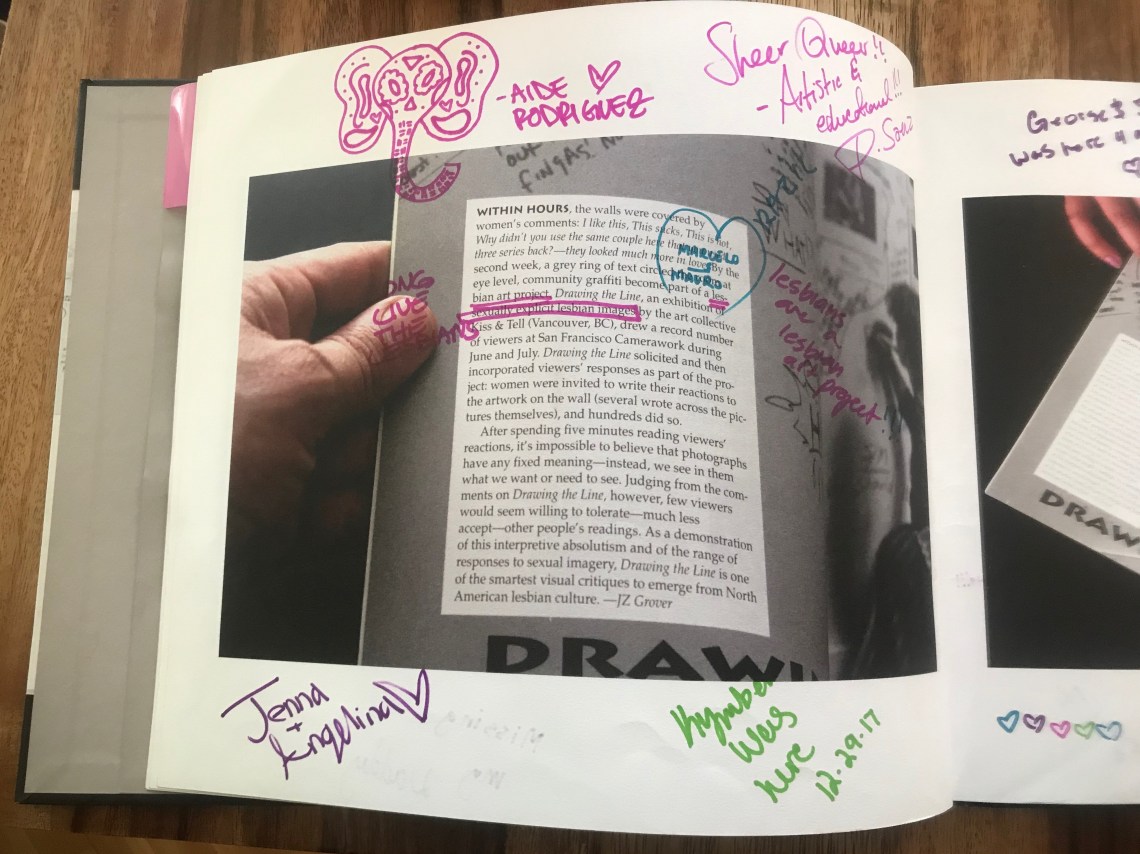 -AIDE
RODRIGUEZ
Sheer Queer!!
- Artistic &
educational!!!
George $
was here 4
out
fingas. No
WITHIN HOURS, the walls were covered by
women's comments: I like this, This sucks, This is hot,
Why didn't you use the same couple here
three series back?—they looked much more in love. By the
second week, a grey ring of text circled
eye level, community graffiti become part of a les-
bian art project. Drawing the Line, an exhibition of
sexually explicit lesbian images by the art collective
Kiss & Tell (Vancouver, BC), drew a record number
of viewers at San Francisco Camerawork during
June and July. Drawing the Line solicited and then
incorporated viewers' responses as part of the pro-
ject: women were invited to write their reactions to
the artwork on the wall (several wrote across the pic-
tures themselves), and hundreds did so.
After spending five minutes reading viewers'
reactions, it's impossible to believe that photographs
have any fixed meaning—instead, we see in them
what we want or need to see. Judging from the com-
ments on Drawing the Line, however, few viewers
would seem willing to tolerate—much less
accept—other people's readings. As a demonstration
of this interpretive absolutism and of the range of
responses to sexual imagery, Drawing the Line is one
of the smartest visual critiques to emerge from North
American lesbian culture. —JZ Grover
MARCELO
MAURO
LONG
LIVE
THE
lesbians
are a
lesbian
art project!!
DRAWI
DRAW
Jenna
+
Angelina
Kymber
Was
here
12-29-17
Missing